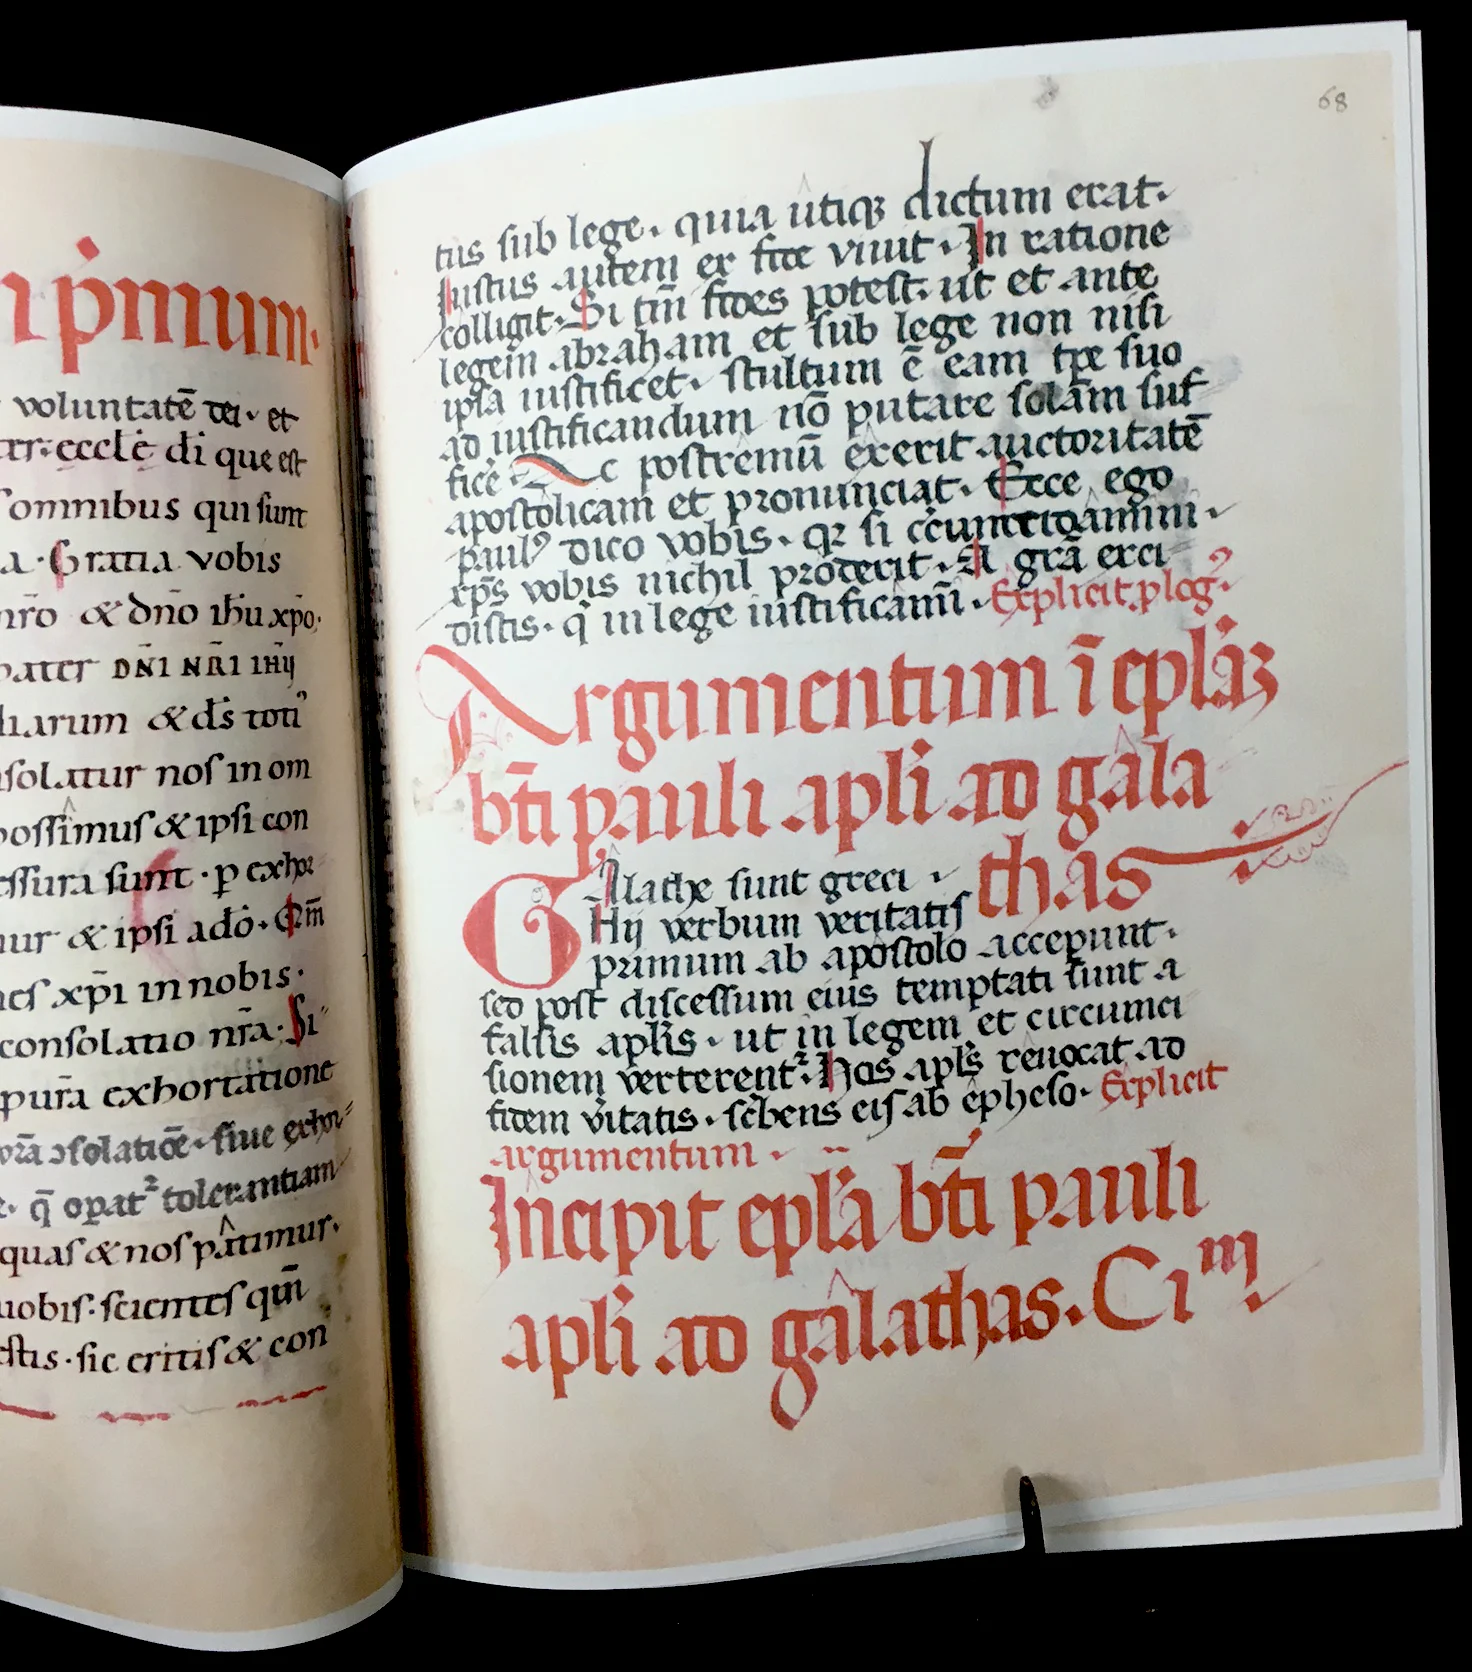 ı p̄mum·
voluntatē dei· et
ar· eccłe di que eſt
omnibus qui ſunt
a · Gratia vobis
nr̄o & dn̄o ih̄u xp̄o·
pater DN̄I NR̄I IHȲ
diarum & ds̄ toti᾿
nſolatur noſ in om
poſſimuſ & ipſi con
eſſura ſunt · p exhor
mur & ipſi a dō · Qm̄
neſ xp̄i in nobis·
conſolatio nr̄a· Si
pur̄a exhortatione
vr̄a ɔſolatiōe· ſiue exhor⸗
e· q̄ opat᷑ tolerantiam
quaſ & noſ patimur·
uobiſ· ſcienteſ qm̄
eſtis · ſic eritiſ & con
68
tus ſub lege· quia utiq; dictum erat·
Iuſtus autem ex fide viuit· In ratione
colligit· Si tm̄ fides poteſt· ut et ante
legem abraham et ſub lege non niſi
ipſa iuſtificet· ſtultum ē eam tpe ſuo
ad iuſtificandum nō putare ſolam ſuf
ficē· Ac poſtremū exerit auctoritatē
apoſtolicam et pronunciat· Ecce ego
paulꝰ dico vobis· qꝛ ſi circumcidamini·
xp̄s vobis nichil proderit· A gr̄a exci
diſtis· q̄ in lege iuſtificamī· Explicit plogꝰ·
Argumentum ī epl̄aʒ
bt̄i pauli apl̄i ad gala
thas
GAlathe sunt greci ·
Hij verbum veritatiſ
primum ab apoſtolo accepunt·
ſed poſt diſceſſum eius temptati ſunt a
falſis apl̄is · ut in legem et circumci
ſionem verterent᷑· Hos apl̄s reuocat ad
fidem v̄itatis· ſc̄bens eiſ ab epheſo· Explicit
argumentum ·
Incipit epl̄a bt̄i pauli
apl̄i ad galathas. Cim